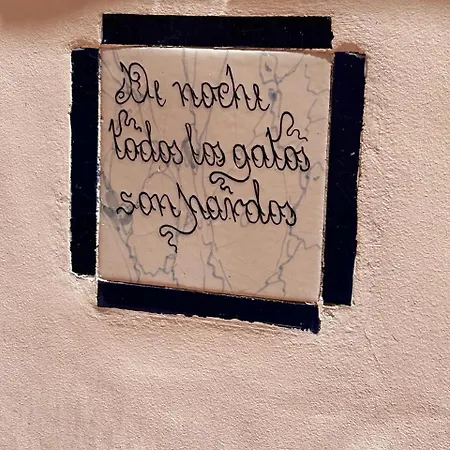 De noche
todos los gatos
son pardos